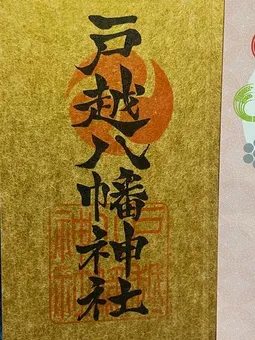 戸越八幡神社